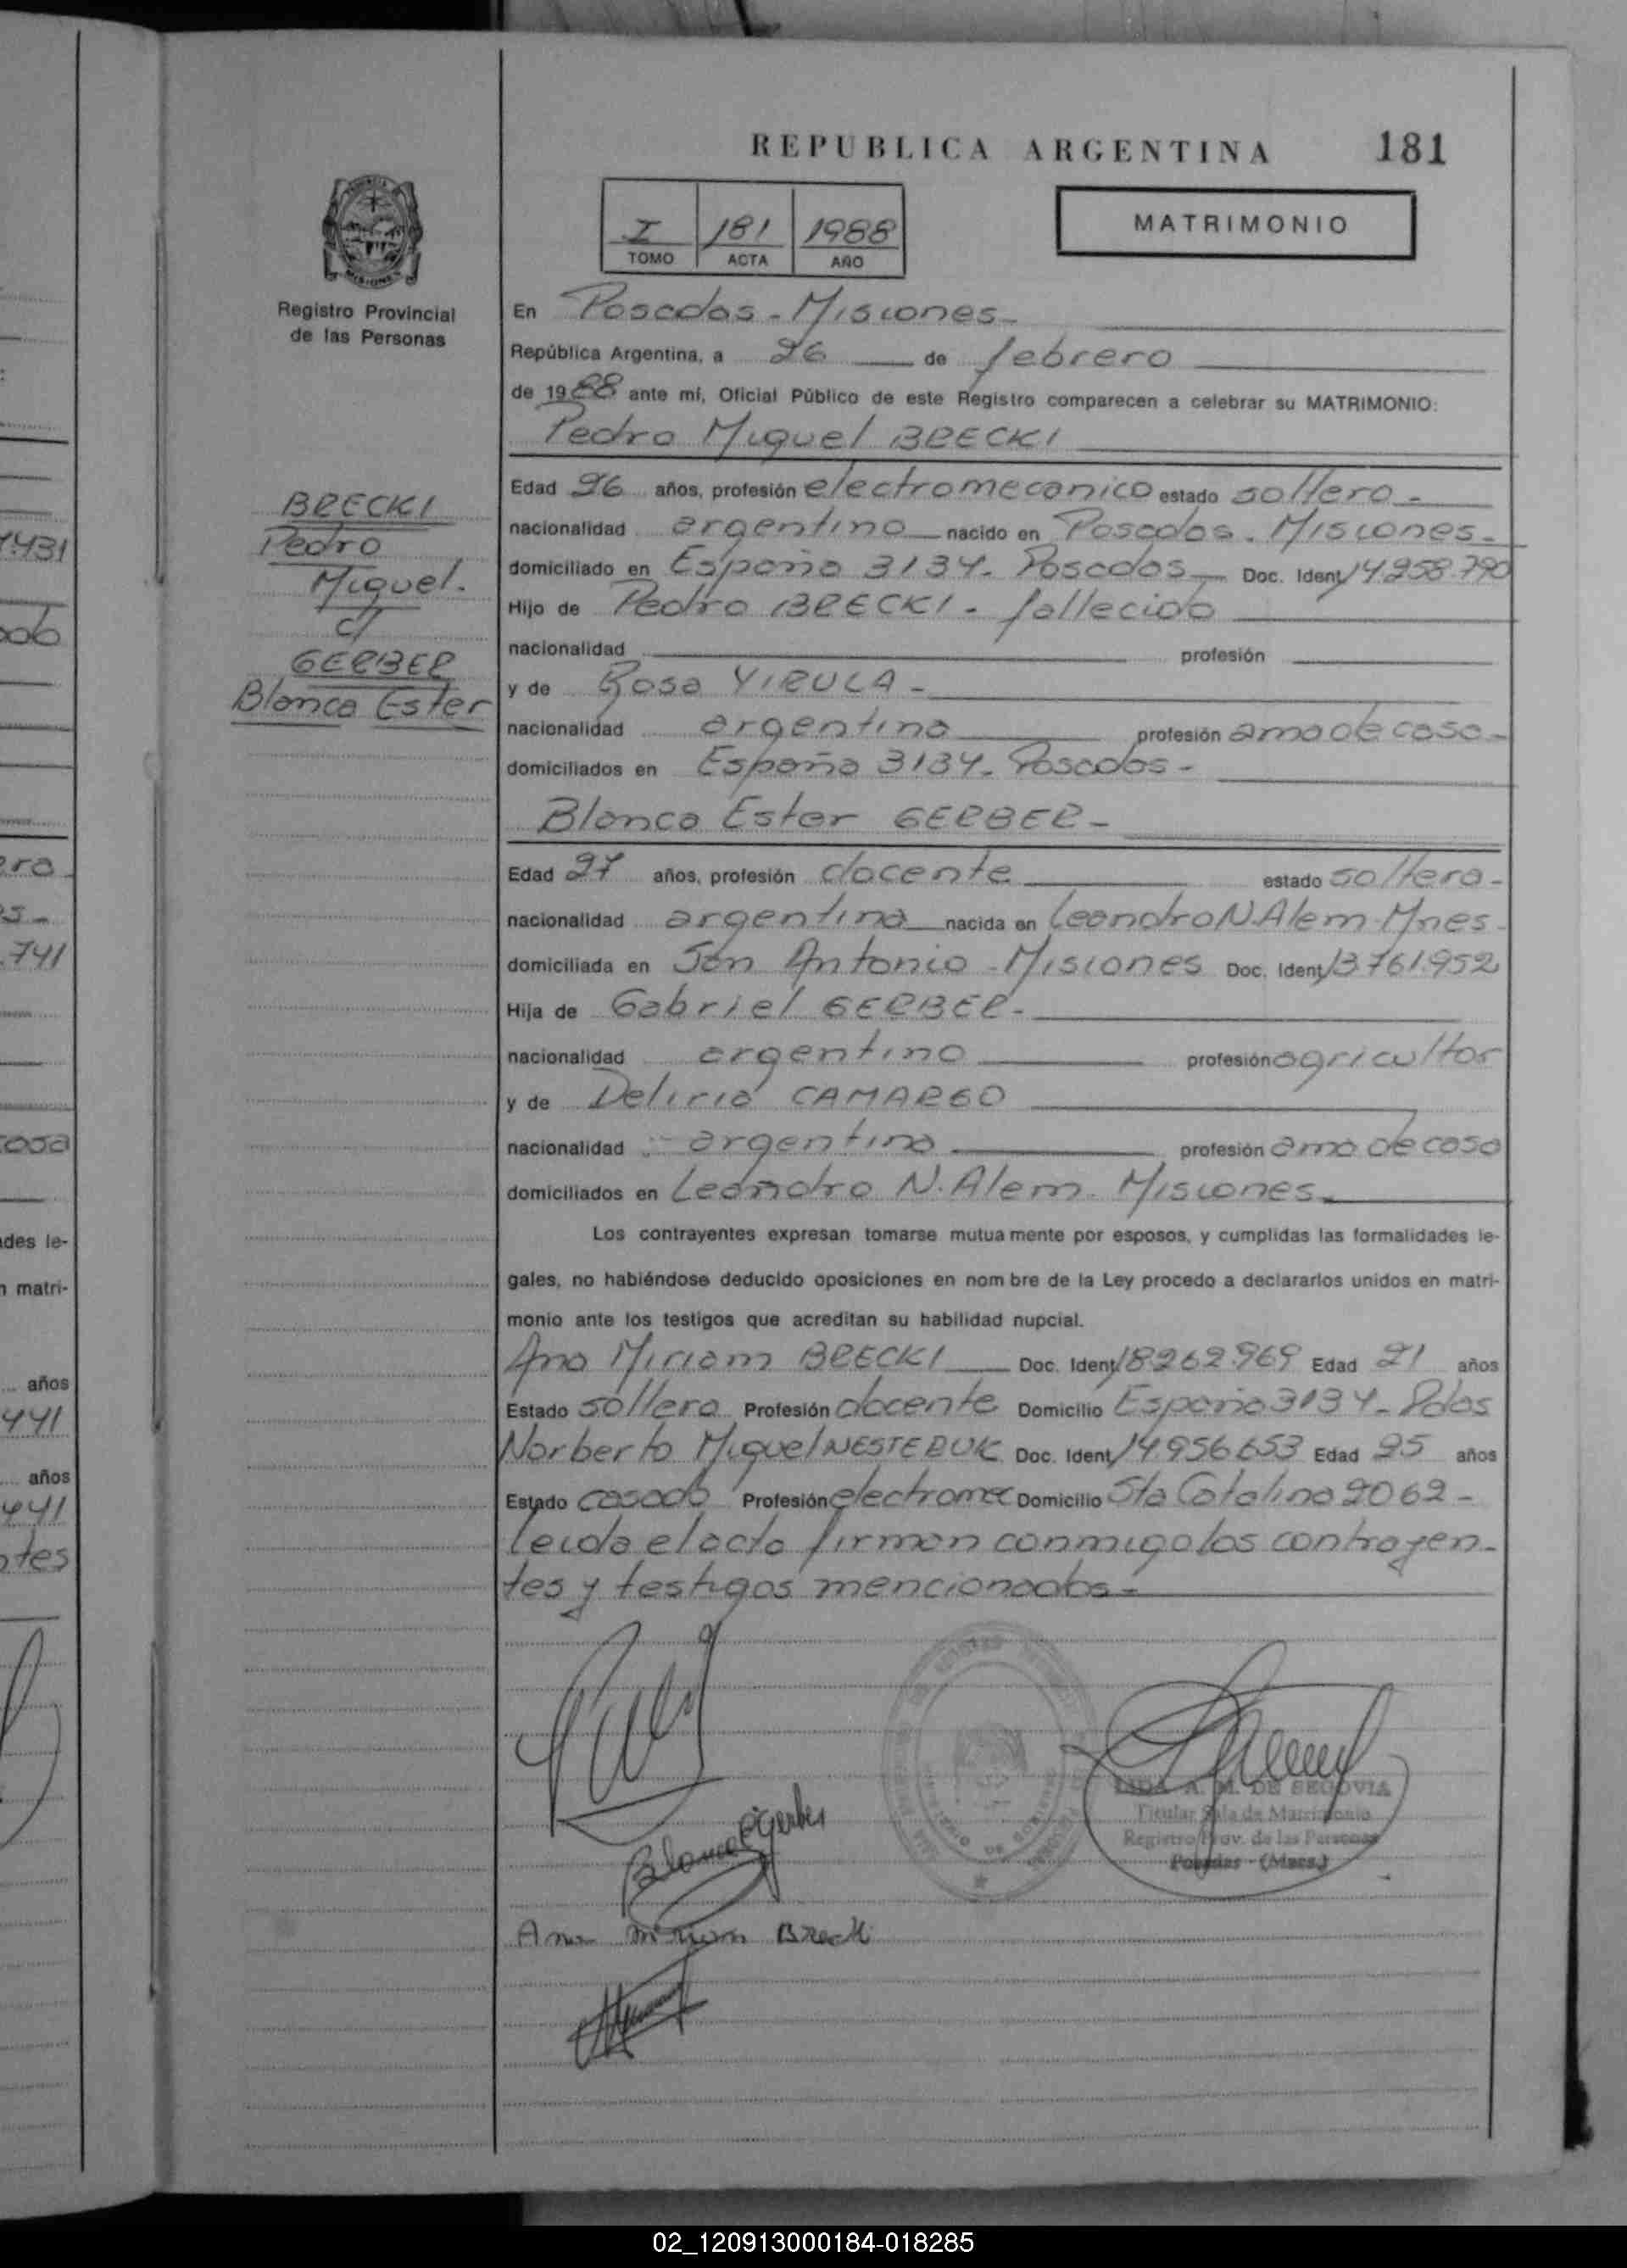 REPUBLICA ARGENTINA 181
MATRIMONIO
I 181 1988
TOMO ACTA AÑO
Registro Provincial
de las Personas
En Posadas - Misiones -
República Argentina, a 26 de febrero
de 1988 ante mí, Oficial Público de este Registro comparecen a celebrar su MATRIMONIO:
Pedro Miguel BRECKI
Edad 26 años, profesión electromecanico estado soltero -
nacionalidad argentino nacido en Posadas - Misiones -
domiciliado en España 3134 - Posadas Doc. Ident 14.258.790
Hijo de Pedro BRECKI - fallecido
nacionalidad profesión
y de Rosa YIRULA -
nacionalidad argentina profesión ama de casa -
domiciliados en España 3134 - Posadas -
BRECKI
Pedro
Miguel.
c/
GERBER
Blanca Ester
Blanca Ester GERBER -
Edad 27 años, profesión docente estado soltera -
nacionalidad argentina nacida en Leandro N. Alem - Mnes -
domiciliada en San Antonio - Misiones Doc. Ident 13.761.952
Hija de Gabriel GERBER -
nacionalidad argentino profesión agricultor
y de Deliria CAMARGO
nacionalidad argentina profesión ama de casa
domiciliados en Leandro N. Alem - Misiones -
Los contrayentes expresan tomarse mutuamente por esposos, y cumplidas las formalidades le-
gales, no habiéndose deducido oposiciones en nombre de la Ley procedo a declararlos unidos en matri-
monio ante los testigos que acreditan su habilidad nupcial.
Ana Miriam BRECKI Doc. Ident 18.262.969 Edad 21 años
Estado soltera Profesión docente Domicilio España 3134 - Pdas
Norberto Miguel NESTERUK Doc. Ident 14.956.653 Edad 25 años
Estado casado Profesión electromec Domicilio Sta Catalina 2062 -
Leida el acta firman conmigo los contrayen-
tes y testigos mencionados -
LIDA A. M. DE SEGOVIA
Titular Sala de Matrimonio
Registro Prov. de las Personas
Posadas - (Mnes.)
Blanca E Gerber
Ana Miriam Brecki
1.431
741
441
441
des le-
n matri-
años
años
02_120913000184-018285